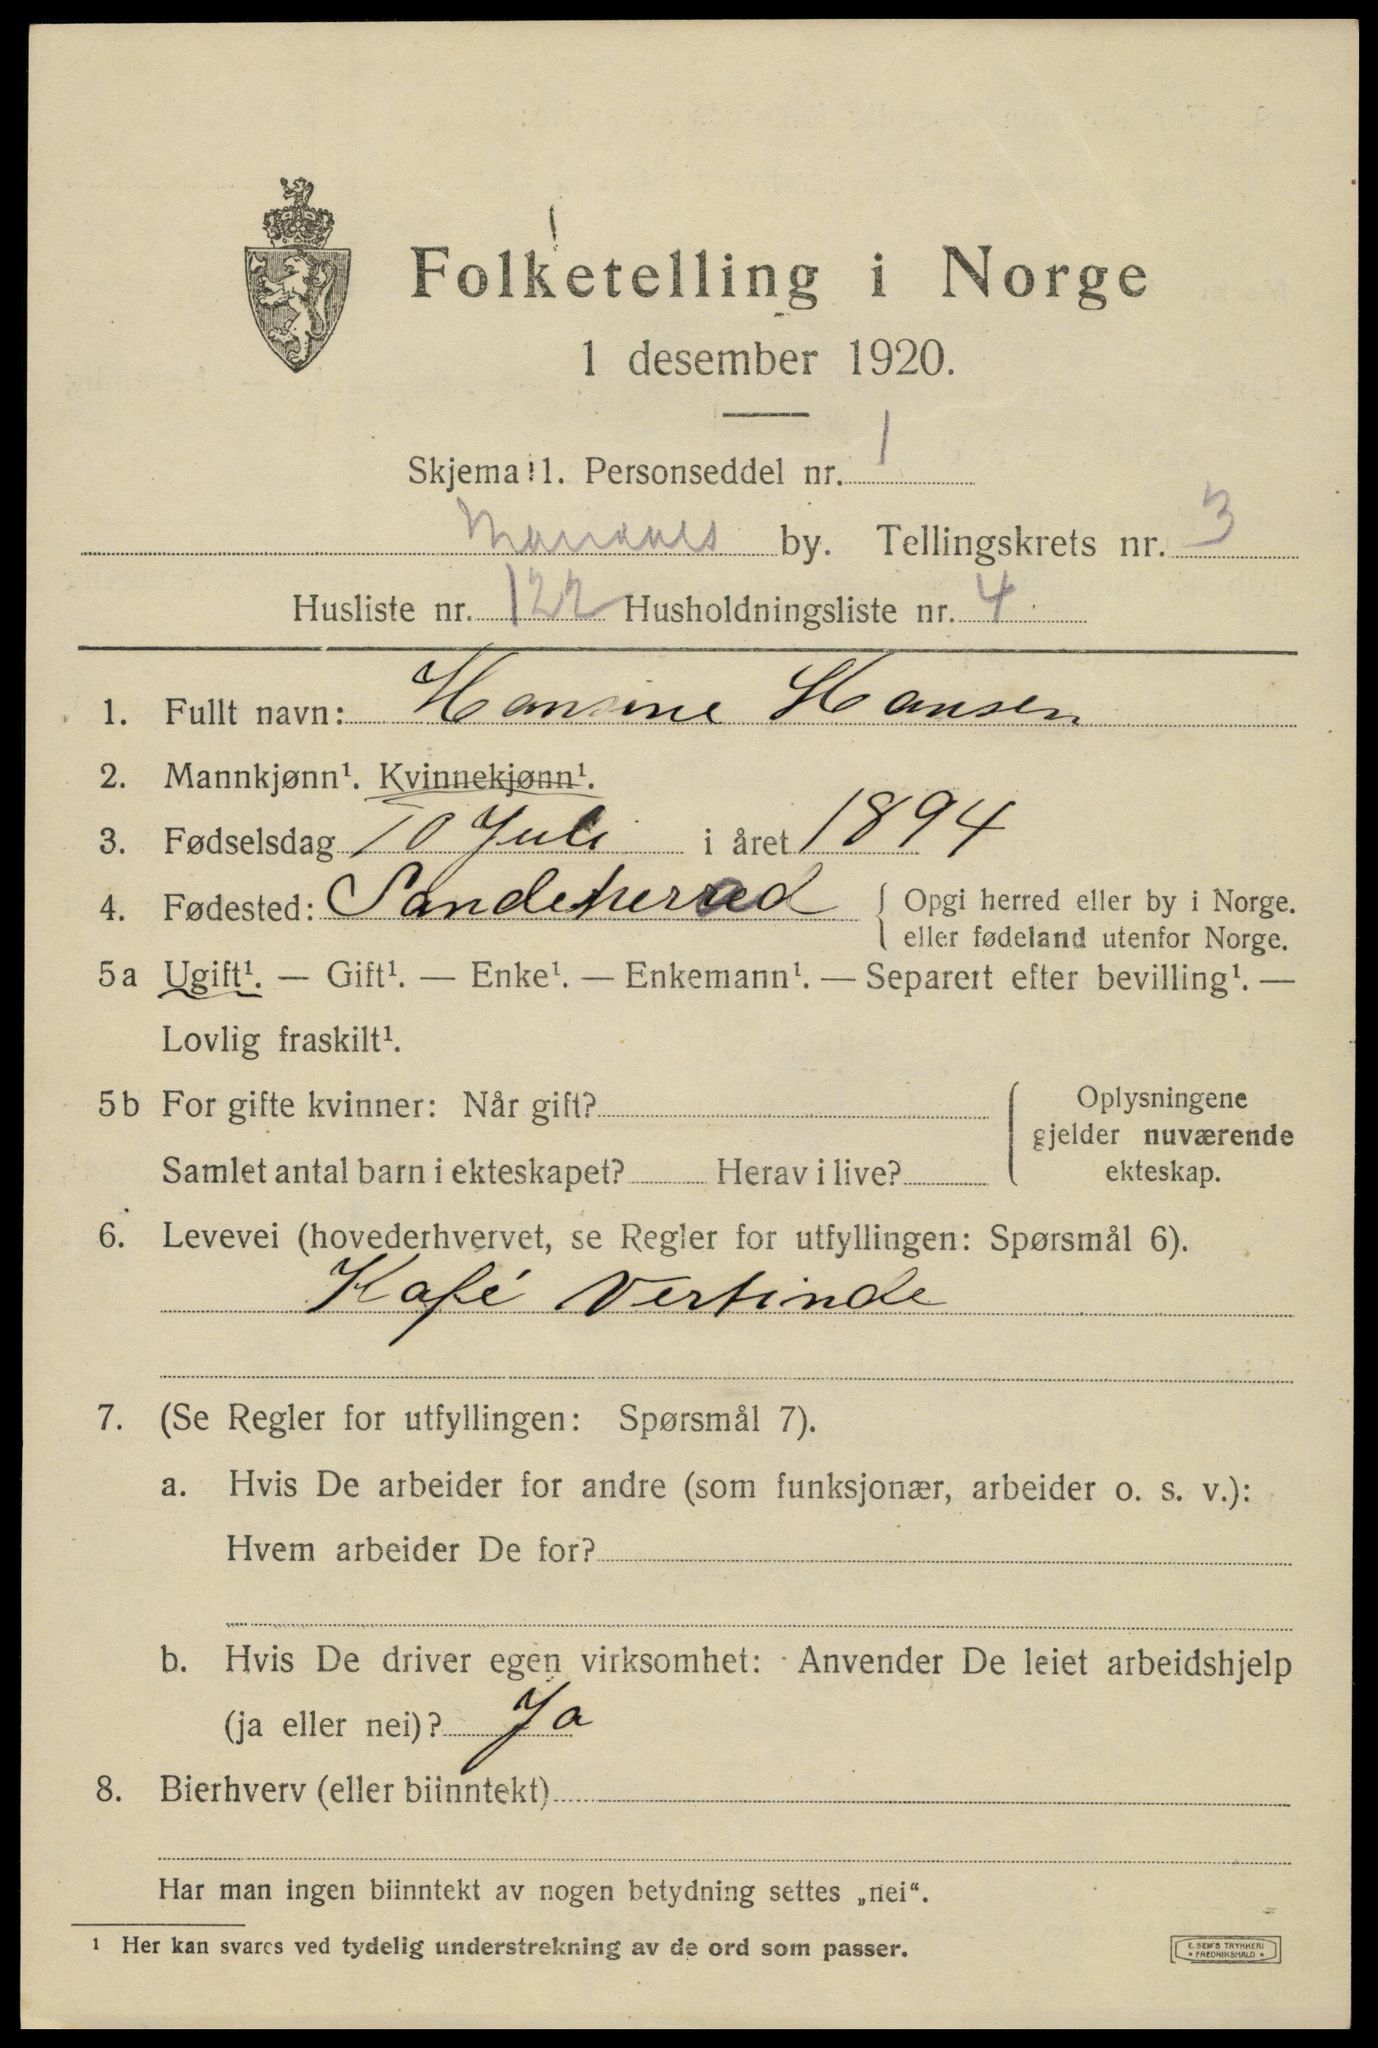 Folketelling i Norge
1 desember 1920.
Skjema 1. Personseddel nr. 1
Mandals by. Tellingskrets nr. 3
Husliste nr. 122 Husholdningsliste nr. 4
1. Fullt navn: Hansine Hansen
2. Mannkjønn¹. Kvinnekjønn¹.
3. Fødselsdag 10 Juli i året 1894
4. Fødested: Sandeherred { Opgi herred eller by i Norge.
eller fødeland utenfor Norge.
5a Ugift¹. — Gift¹. — Enke¹. — Enkemann¹. — Separert efter bevilling¹. —
Lovlig fraskilt¹.
5b For gifte kvinner: Når gift?
Samlet antal barn i ekteskapet? Herav i live?
Oplysningene
gjelder nuværende
ekteskap.
6. Levevei (hovederhvervet, se Regler for utfyllingen: Spørsmål 6).
Kafé Vertinde
7. (Se Regler for utfyllingen: Spørsmål 7).
a. Hvis De arbeider for andre (som funksjonær, arbeider o. s. v.):
Hvem arbeider De for?
b. Hvis De driver egen virksomhet: Anvender De leiet arbeidshjelp
(ja eller nei)? Ja
8. Bierhverv (eller biinntekt)
Har man ingen biinntekt av nogen betydning settes „nei“.
¹ Her kan svares ved tydelig understrekning av de ord som passer.
E. SEM'S TRYKKERI
* FREDRIKSHALD *